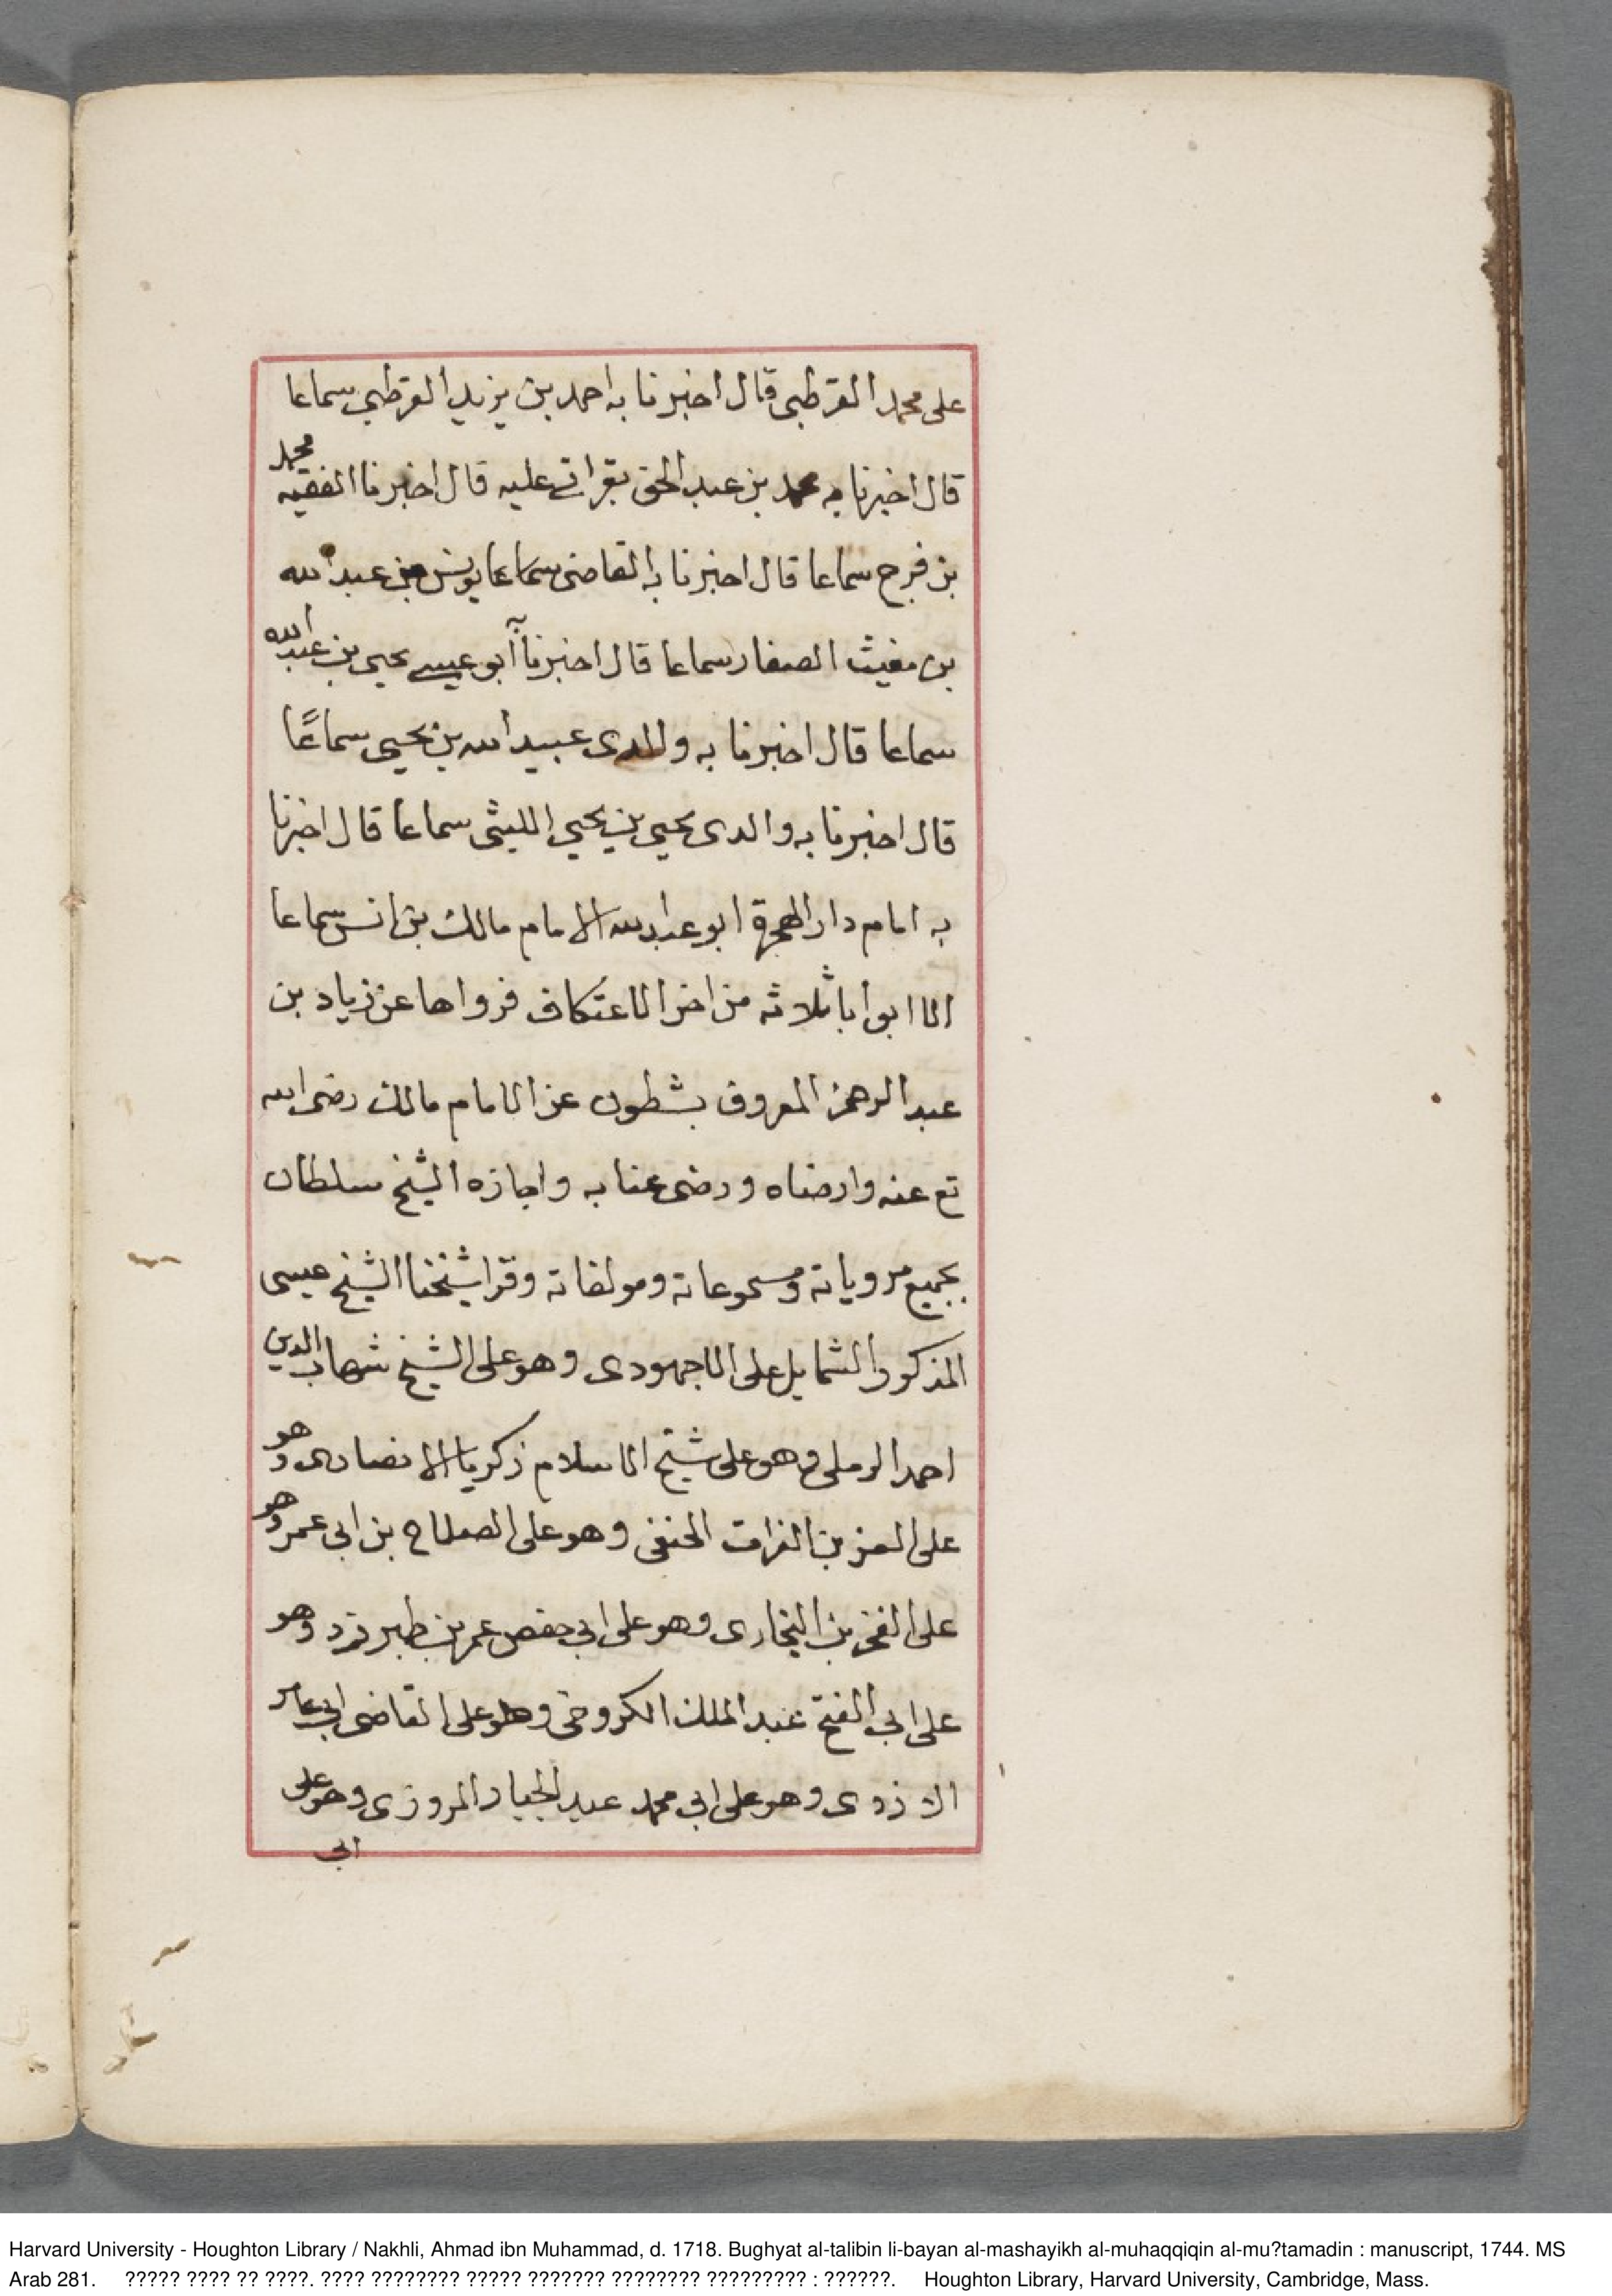 على محمد القرطبي قال اخبرنا به احمد بن يزيد القرطبي سماعا
قال اخبرنا به محمد بن عبد الحق بقراتي عليه قال اخبرنا الفقيه محمد
بن فرج سماعا قال اخبرنا به القاضي سماعا يونس بن عبد الله
بن مغيث الصفار سماعا قال اخبرنا به أبو عيسى يحيى بن عبد الله
سماعا قال اخبرنا به والدى عبيد الله بن يحيى سماعًا
قال اخبرنا به والدى يحيى بن يحيى الليثى سماعا قال اخبرنا
به امام دار الهجرة ابو عبد الله الامام مالك بن انس سماعا
الا ابوابا ثلاثه من اخر الاعتكاف فرواها عن زياد بن
عبد الرحمن المعروف بشطون عن الامام مالك رضى الله
تع عنه وارضاه ورضى عنا به واجازه الشيخ سلطان
بجميع مروياته ومسموعاته ومولفاته وقرا شيخنا الشيخ عيسى
المذكور الشمايل على الاجهورى وهو على الشيخ شهاب الدين
احمد الرملى وهو على شيخ الاسلام زكريا الانصارى وهو
على العز بن الفرات الحنفى وهو على الصلاح بن ابى عمر وهو
على الفخر بن البخارى وهو على ابى حفص عمر بن طبرزد وهو
على ابى الفتح عبد الملك الكروخى وهو على القاضى ابى عامر
الازدى وهو على ابى محمد عبد الجبار المروزى وهو على
ابى
Harvard University - Houghton Library / Nakhli, Ahmad ibn Muhammad, d. 1718. Bughyat al-talibin li-bayan al-mashayikh al-muhaqqiqin al-mu?tamadin : manuscript, 1744. MS
Arab 281. ????? ???? ?? ????. ???? ???????? ????? ??????? ???????? ????????? : ??????. Houghton Library, Harvard University, Cambridge, Mass.